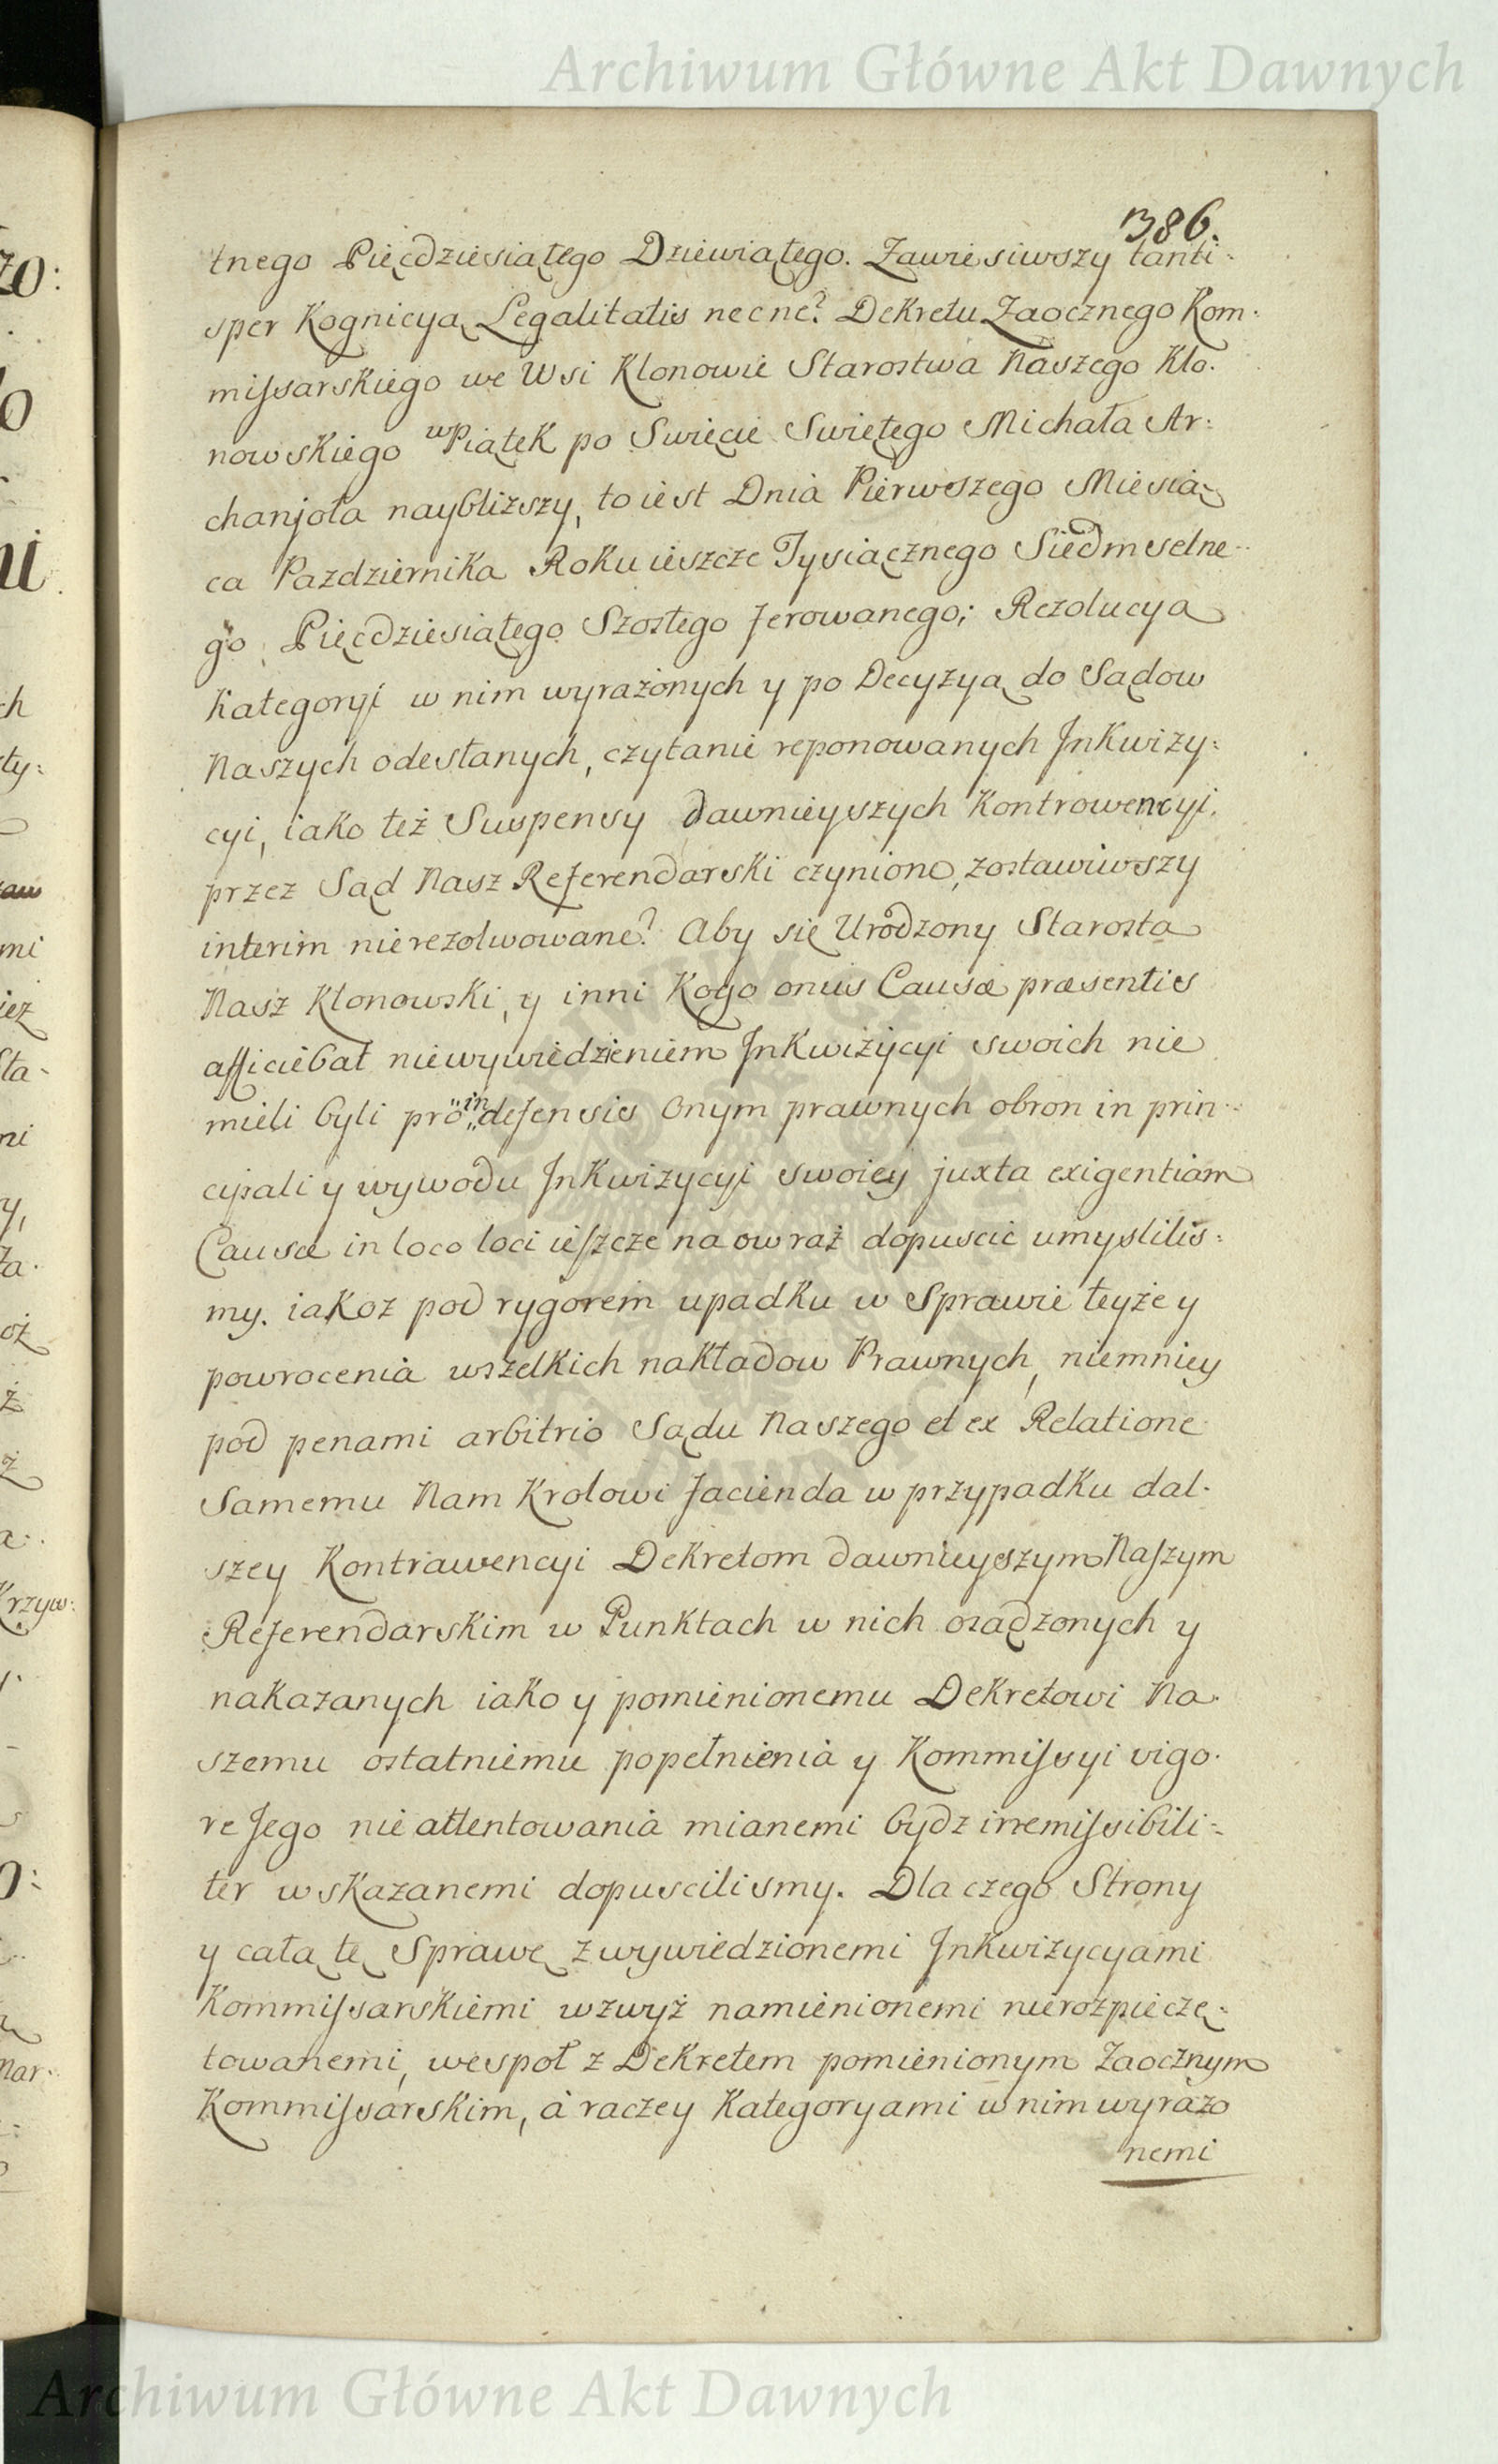 Archiwum Główne Akt Dawnych
1386.
tnego Pięcdziesiątego Dziewiątego. Zawiesiwszy tanti-
sper Kognicyą Legalitatis necne? Dekretu Zaocznego Kom-
missarskiego we Wsi Klonowie Starostwa Naszego Klo-
nowskiego w Piątek po Swięcie Swiętego Michała Ar:
chanjoła naybliższy, to iest Dnia Pierwszego Miesią-
ca Pazdziernika Roku ieszcze Tysiącznego Siedmsetne-
go Pięcdziesiątego Szostego ferowanego; Rezolucya
Kategoryi w nim wyrażonych y po Decyzyą do Sądow
Naszych odesłanych, czytanie reponowanych Inkwizy:
cyi, iako też Suspensy dawnieyszych Kontrowencyi
przez Sąd Nasz Referendarski czynione, zostawiwszy
interim nierezolwowane? Aby się Urodzony Starosta
Nasz Klonowski, y inni Kogo onus Causæ præsentis
afficiebat niewywiedzieniem Inkwizycyi swoich nie
mieli byli pro in defensis Onym prawnych obron in prin-
cipali y wywodu Inkwizycyi swoiey juxta exigentiam
Causæ in loco loci ieszcze na ow raz dopuscic umyslilis:
my. iakoz pod rygorem upadku w Sprawie teyże y
powrocenia wszelkich nakładow Prawnych, niemniey
pod penami arbitrio Sądu Naszego et ex Relatione
Samemu Nam Krolowi facienda w przypadku dal-
szey Kontrawencyi Dekretom dawnieyszym Naszym
Referendarskim w Punktach w nich osądzonych y
nakazanych iako y pomienionemu Dekretowi Na-
szemu ostatniemu popełnienia y Kommissyi vigo-
re Jego nie attentowania mianemi bydz irremissibili-
ter wskazanemi dopuscilismy. Dla czego Strony
y całą tę Sprawę z wywiedzionemi Inkwizycyami
Kommissarskiemi wzwyż namienionemi nierozpieczę-
towanemi, wespoł z Dekretem pomienionym Zaocznym
Kommissarskim, a raczey Kategoryami w nim wyrażo
nemi
Archiwum Główne Akt Dawnych